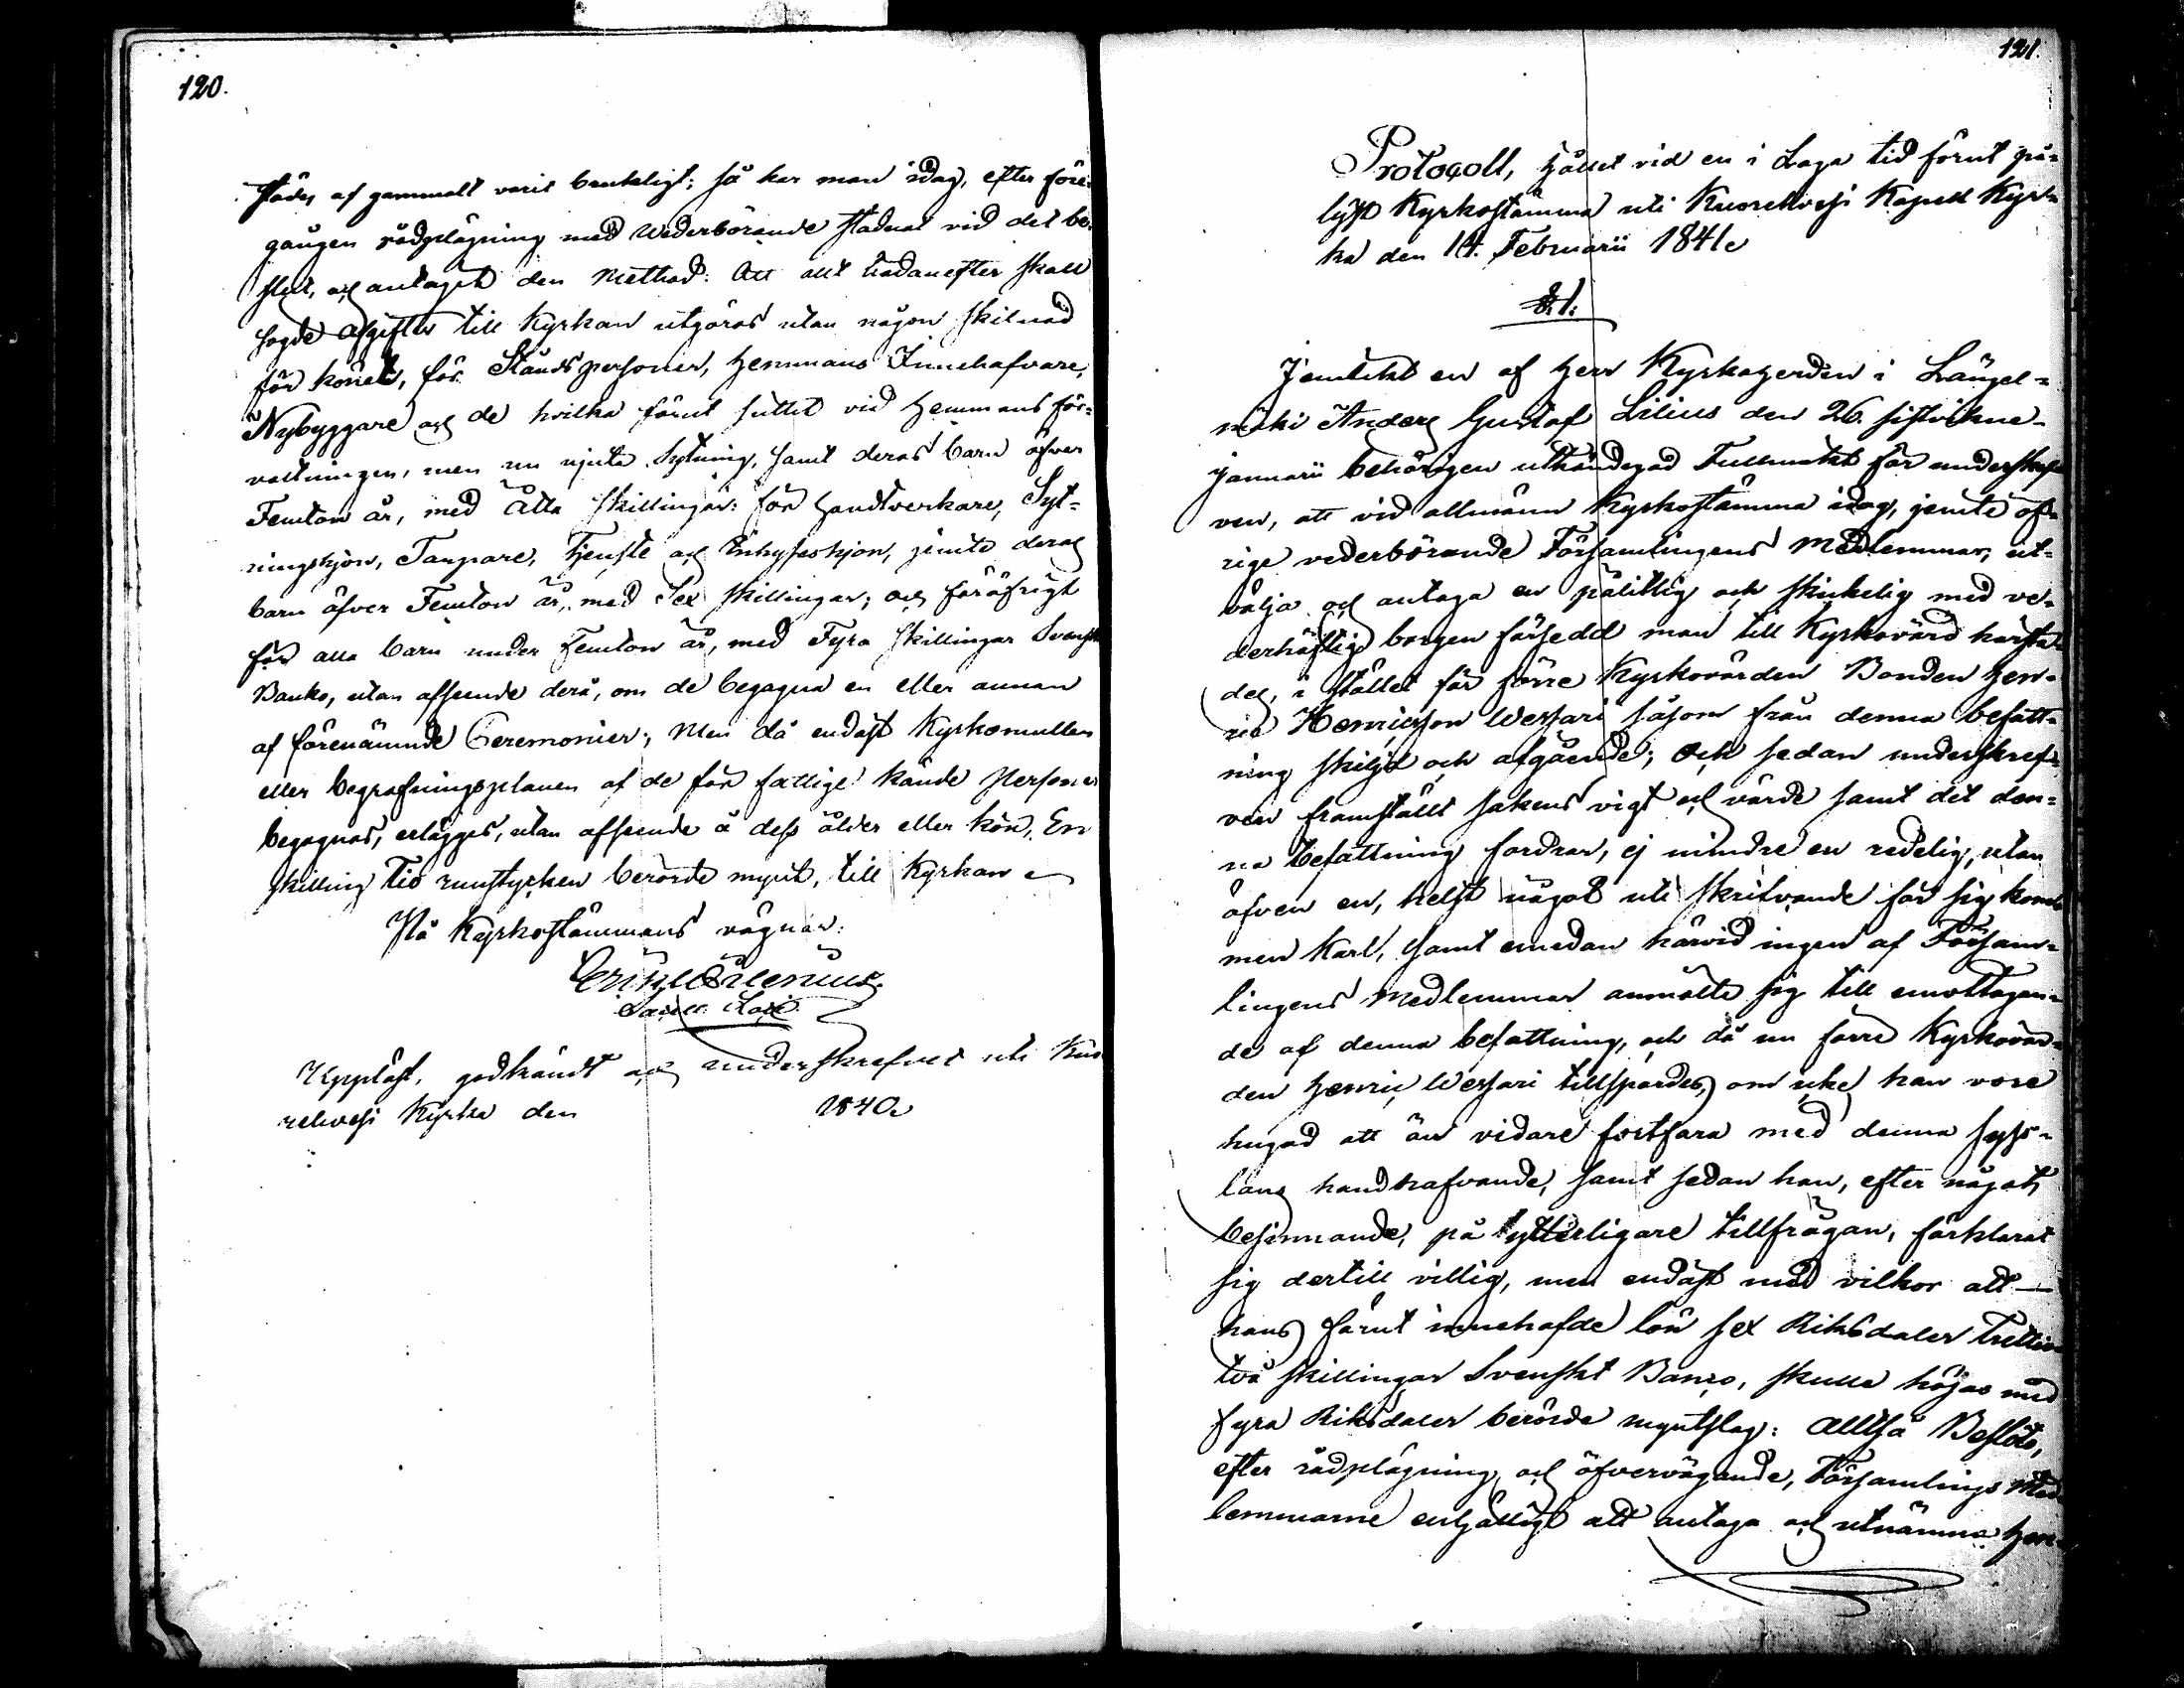 120.
städes af gammalt varit brukligt; så har man idag, efter före-
gången rådplägning med Wederbörande stadnat vid det be-
slut, och antagit den Method: Att allt hädanefter skall
sagde afgifter till Kyrkan utgöras utan någon skilnad
för könet, för Ståndspersoner, Hemmans Innehafvare,
Nybyggare och de hvilka förut suttit vid Hemmans för-
valtningen, men nu njuta Sytning, samt deras barn öfver
Femton år, med Åtta skillingar: för Handtverkare, Syt-
ningshjon, Torpare, Tjenste och Inhyseshjon, jemte deras
barn öfver Femton år, med Sex skillingar; och föröfrigt
för alla barn under Femton år, med Fyra skillingar Svenskt
Banko, utan afseende derå, om de begagna en eller annan
af förenämnde Ceremonier; Men då endast Kyrkomullen
eller begrafningsplanen af de för fattige kände Personer
begagnas, erlägges, utan afseende å dess ålder eller kön, En
skilling Tio runstycken berörde mynt, till Kyrkan
På Kyrkostämmans vägnar:
Uppläst, godkändt och underskrefvet uti Kuo
rehvesi Kyrka den 1840.
121.
Protocoll, hållet vid en i Laga tid förut på-
lyst Kyrkostämma uti Kuorehvesi Kapell Kyr-
ka den 14. Februarii 1841.
§.1.
Jemlikt en af Herr Kyrkoherden i Längel-
mäki Anders Gustaf Lilius den 26. sistvikne
Januarii behörigen uthändigad Fullmakt för underskref
ven, att vid allmänn Kyrkostämma idag, jemte öf-
rige vederbörande Församlingens Medlemmar, ut-
välja och antaga en pålitlig och skickelig med ve-
derhäftig borgen försedd man till Kyrkovärd härstä-
des, i stället för förre Kyrkovärden Bonden Hen-
ric Henricsson Wessari såsom från denna befatt-
ning skiljd och afgående; Och sedan underskref-
ven framställt sakens vigt och värde samt det den-
na befattning fordrar, ej mindre en redelig, utan
öfven en, helst något uti skrifvande för sig kom-
men Karl, samt emedan härvid ingen af Försam-
lingens Medlemmar anmälte sig till emottagan-
de af denna befattning, och då nu förre Kyrkovär-
den Henric Wessari tillspordes, om icke han vore
hugad att än vidare fortfara med denna syss-
lans handhafvande, samt sedan han, efter något
besinnande, på ytterligare tillfrågan, förklarat
sig dertill villig, men endast med vilkor att
hans förut innehafde lön sex Riksdaler Trettio-
två skillingar Svenskt Banco, skulle höjas med
fyra Riksdaler berörde myntslag: Alltså Beslöto,
efter rådplägning och öfvervägande, Församlings Med
lemmarne enhälligt att antaga och utnämna Hen-